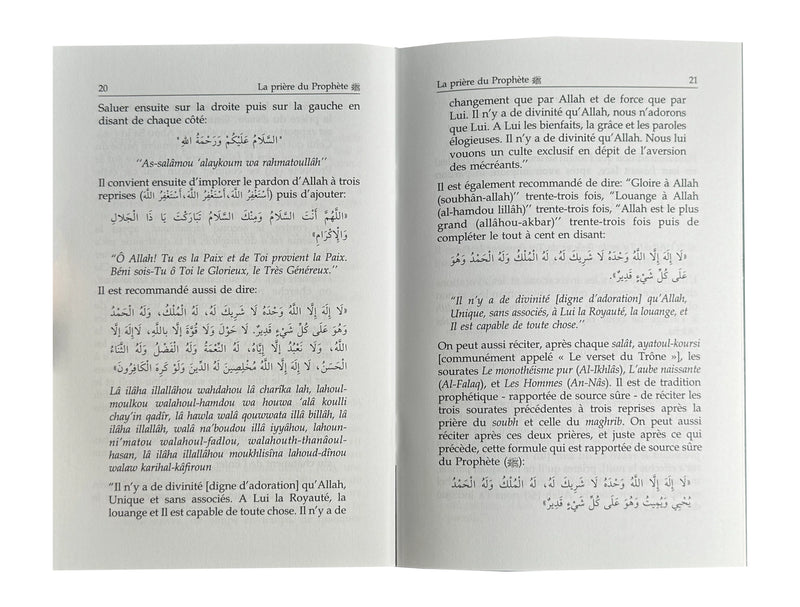 20 La prière du Prophète ﷺ
Saluer ensuite sur la droite puis sur la gauche en
disant de chaque côté:
"السَّلَامُ عَلَيْكُمْ وَرَحْمَةُ اللهِ"
"As-salâmou 'alaykoum wa rahmatoullâh"
Il convient ensuite d'implorer le pardon d'Allah à trois
reprises (أَسْتَغْفِرُ اللَّهَ، أَسْتَغْفِرُ اللَّهَ، أَسْتَغْفِرُ اللَّهَ) puis d'ajouter:
«اللَّهُمَّ أَنْتَ السَّلَامُ وَمِنْكَ السَّلَامُ تَبَارَكْتَ يَا ذَا الْجَلَالِ
وَالْإِكْرَامِ»
"Ô Allah! Tu es la Paix et de Toi provient la Paix.
Béni sois-Tu ô Toi le Glorieux, le Très Généreux."
Il est recommandé aussi de dire:
«لَا إِلَهَ إِلَّا اللَّهُ وَحْدَهُ لَا شَرِيكَ لَهُ، لَهُ الْمُلْكُ، وَلَهُ الْحَمْدُ
وَهُوَ عَلَى كُلِّ شَيْءٍ قَدِيرٌ. لَا حَوْلَ وَلَا قُوَّةَ إِلَّا بِاللَّهِ، لَا إِلَهَ إِلَّا
اللَّهُ، وَلَا نَعْبُدُ إِلَّا إِيَّاهُ، لَهُ النِّعْمَةُ وَلَهُ الْفَضْلُ وَلَهُ الثَّنَاءُ
الْحَسَنُ، لَا إِلَهَ إِلَّا اللَّهُ مُخْلِصِينَ لَهُ الدِّينَ وَلَوْ كَرِهَ الْكَافِرُونَ»
Lâ ilâha illallâhou wahdahou lâ charîka lah, lahoul-
moulkou walahoul-hamdou wa houwa 'alâ koulli
chay'in qadîr, lâ hawla walâ qouwwata illâ billâh, lâ
ilâha illallâh, walâ na'boudou illâ iyyâhou, lahoun-
ni'matou walahoul-fadlou, walahouth-thanâoul-
hasan, lâ ilâha illallâhou moukhlisîna lahoud-dînou
walaw karihal-kâfiroun
"Il n'y a de divinité [digne d'adoration] qu'Allah,
Unique et sans associés. A Lui la Royauté, la
louange et Il est capable de toute chose. Il n'y a de
La prière du Prophète ﷺ 21
changement que par Allah et de force que par
Lui. Il n'y a de divinité qu'Allah, nous n'adorons
que Lui. A Lui les bienfaits, la grâce et les paroles
élogieuses. Il n'y a de divinité qu'Allah. Nous lui
vouons un culte exclusif en dépit de l'aversion
des mécréants."
Il est également recommandé de dire: "Gloire à Allah
(soubhân-allah)" trente-trois fois, "Louange à Allah
(al-hamdou lillâh)" trente-trois fois, "Allah est le plus
grand (allâhou-akbar)" trente-trois fois puis de
compléter le tout à cent en disant:
«لَا إِلَهَ إِلَّا اللَّهُ وَحْدَهُ لَا شَرِيكَ لَهُ، لَهُ الْمُلْكُ وَلَهُ الْحَمْدُ وَهُوَ
عَلَى كُلِّ شَيْءٍ قَدِيرٌ».
"Il n'y a de divinité [digne d'adoration] qu'Allah,
Unique, sans associés, à Lui la Royauté, la louange, et
Il est capable de toute chose."
On peut aussi réciter, après chaque salât, ayatoul-koursi
[communément appelé « Le verset du Trône »], les
sourates Le monothéisme pur (Al-Ikhlâs), L'aube naissante
(Al-Falaq), et Les Hommes (An-Nâs). Il est de tradition
prophétique - rapportée de source sûre - de réciter les
trois sourates précédentes à trois reprises après la
prière du soubh et celle du maghrib. On peut aussi
réciter après ces deux prières, et juste après ce qui
précède, cette formule qui est rapportée de source sûre
du Prophète (ﷺ):
«لَا إِلَهَ إِلَّا اللَّهُ وَحْدَهُ لَا شَرِيكَ لَهُ، لَهُ الْمُلْكُ وَلَهُ الْحَمْدُ
يُحْيِي وَيُمِيتُ وَهُوَ عَلَى كُلِّ شَيْءٍ قَدِيرٌ»